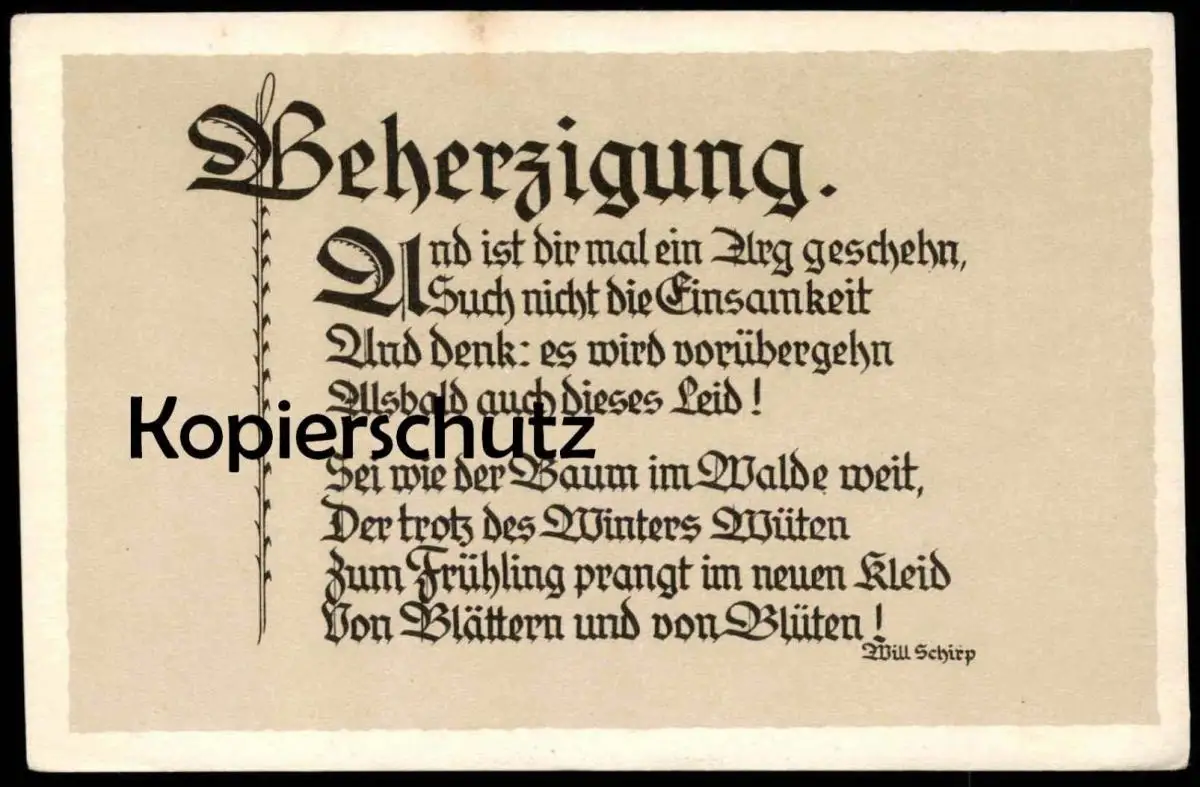 Beherzigung.
And ist dir mal ein Arg geschehn,
Such nicht die Einsamkeit
And denk: es wird vorübergehn
Alsbald auch dieses Leid!
Kopierschutz
Sei wie der Baum im Walde weit,
Der trotz des Winters Wüten
Zum Frühling prangt im neuen Kleid
Von Blättern und von Blüten!
Will Schirp